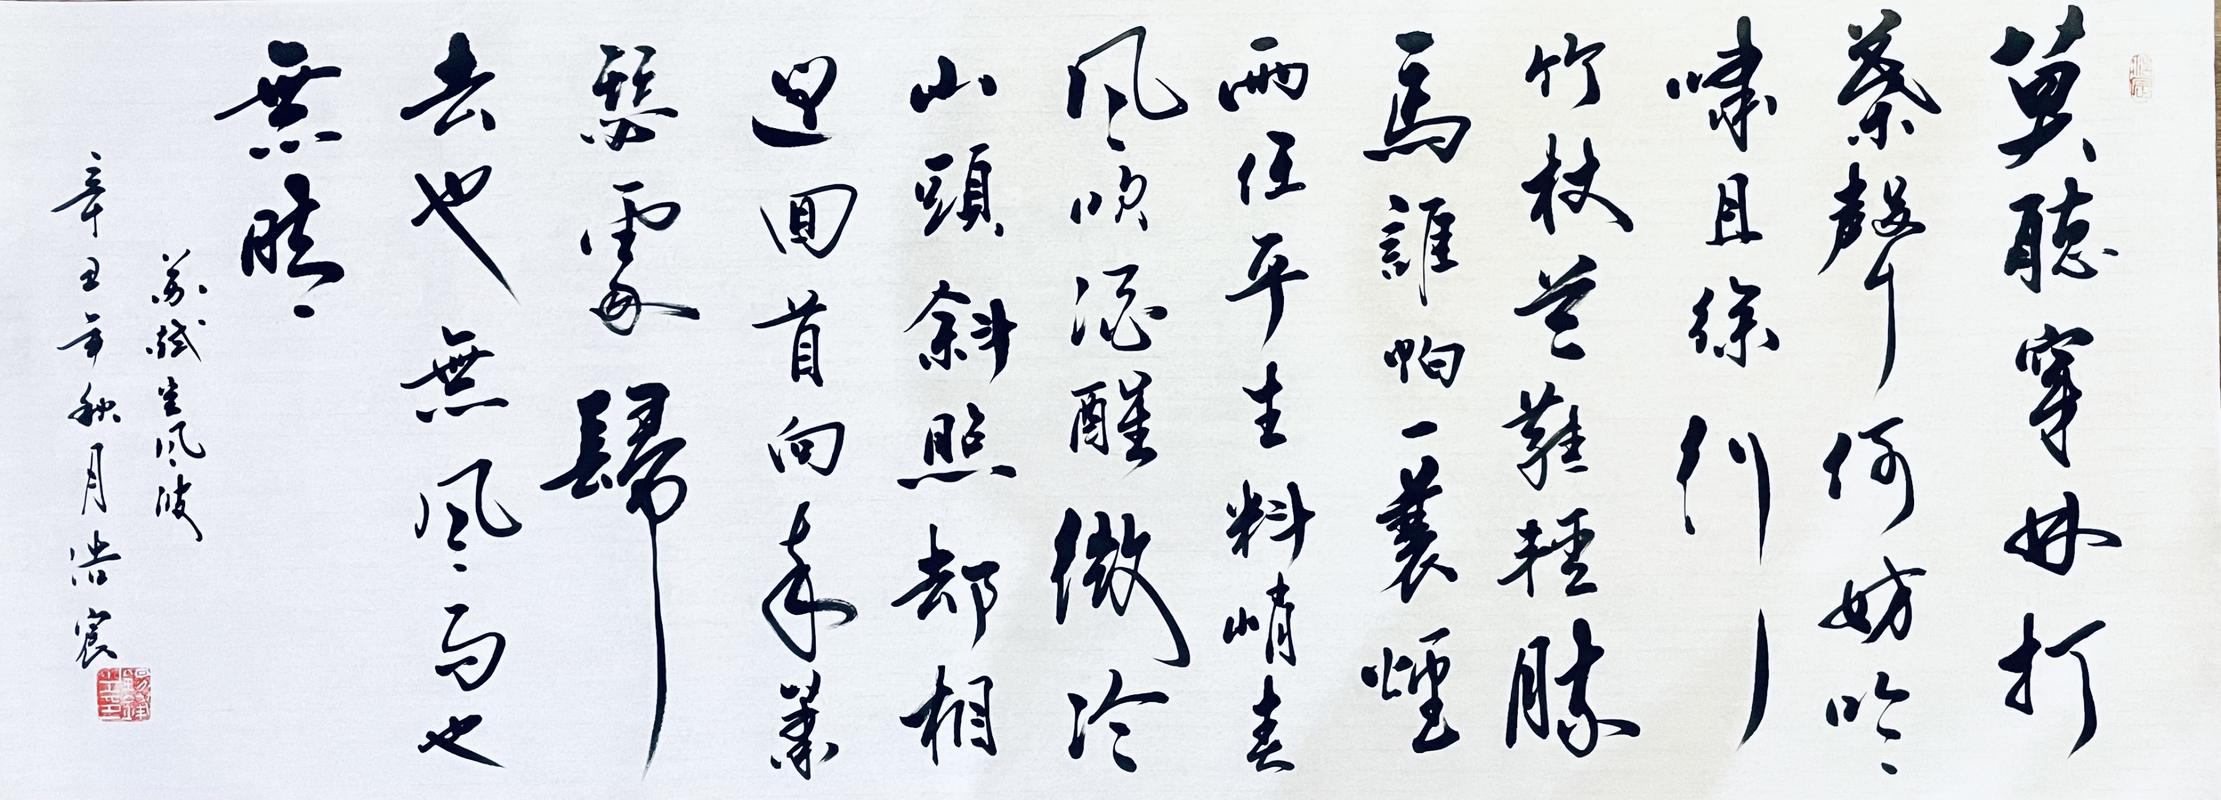 莫聽穿林打
葉聲何妨吟
嘯且徐行
竹杖芒鞋輕勝
馬誰怕一蓑煙
雨任平生料峭春
風吹酒醒微冷
山頭斜照却相
迎回首向來蕭
瑟處歸
去也無風雨也
無晴
蘇軾定風波
辛丑年秋月浩宸